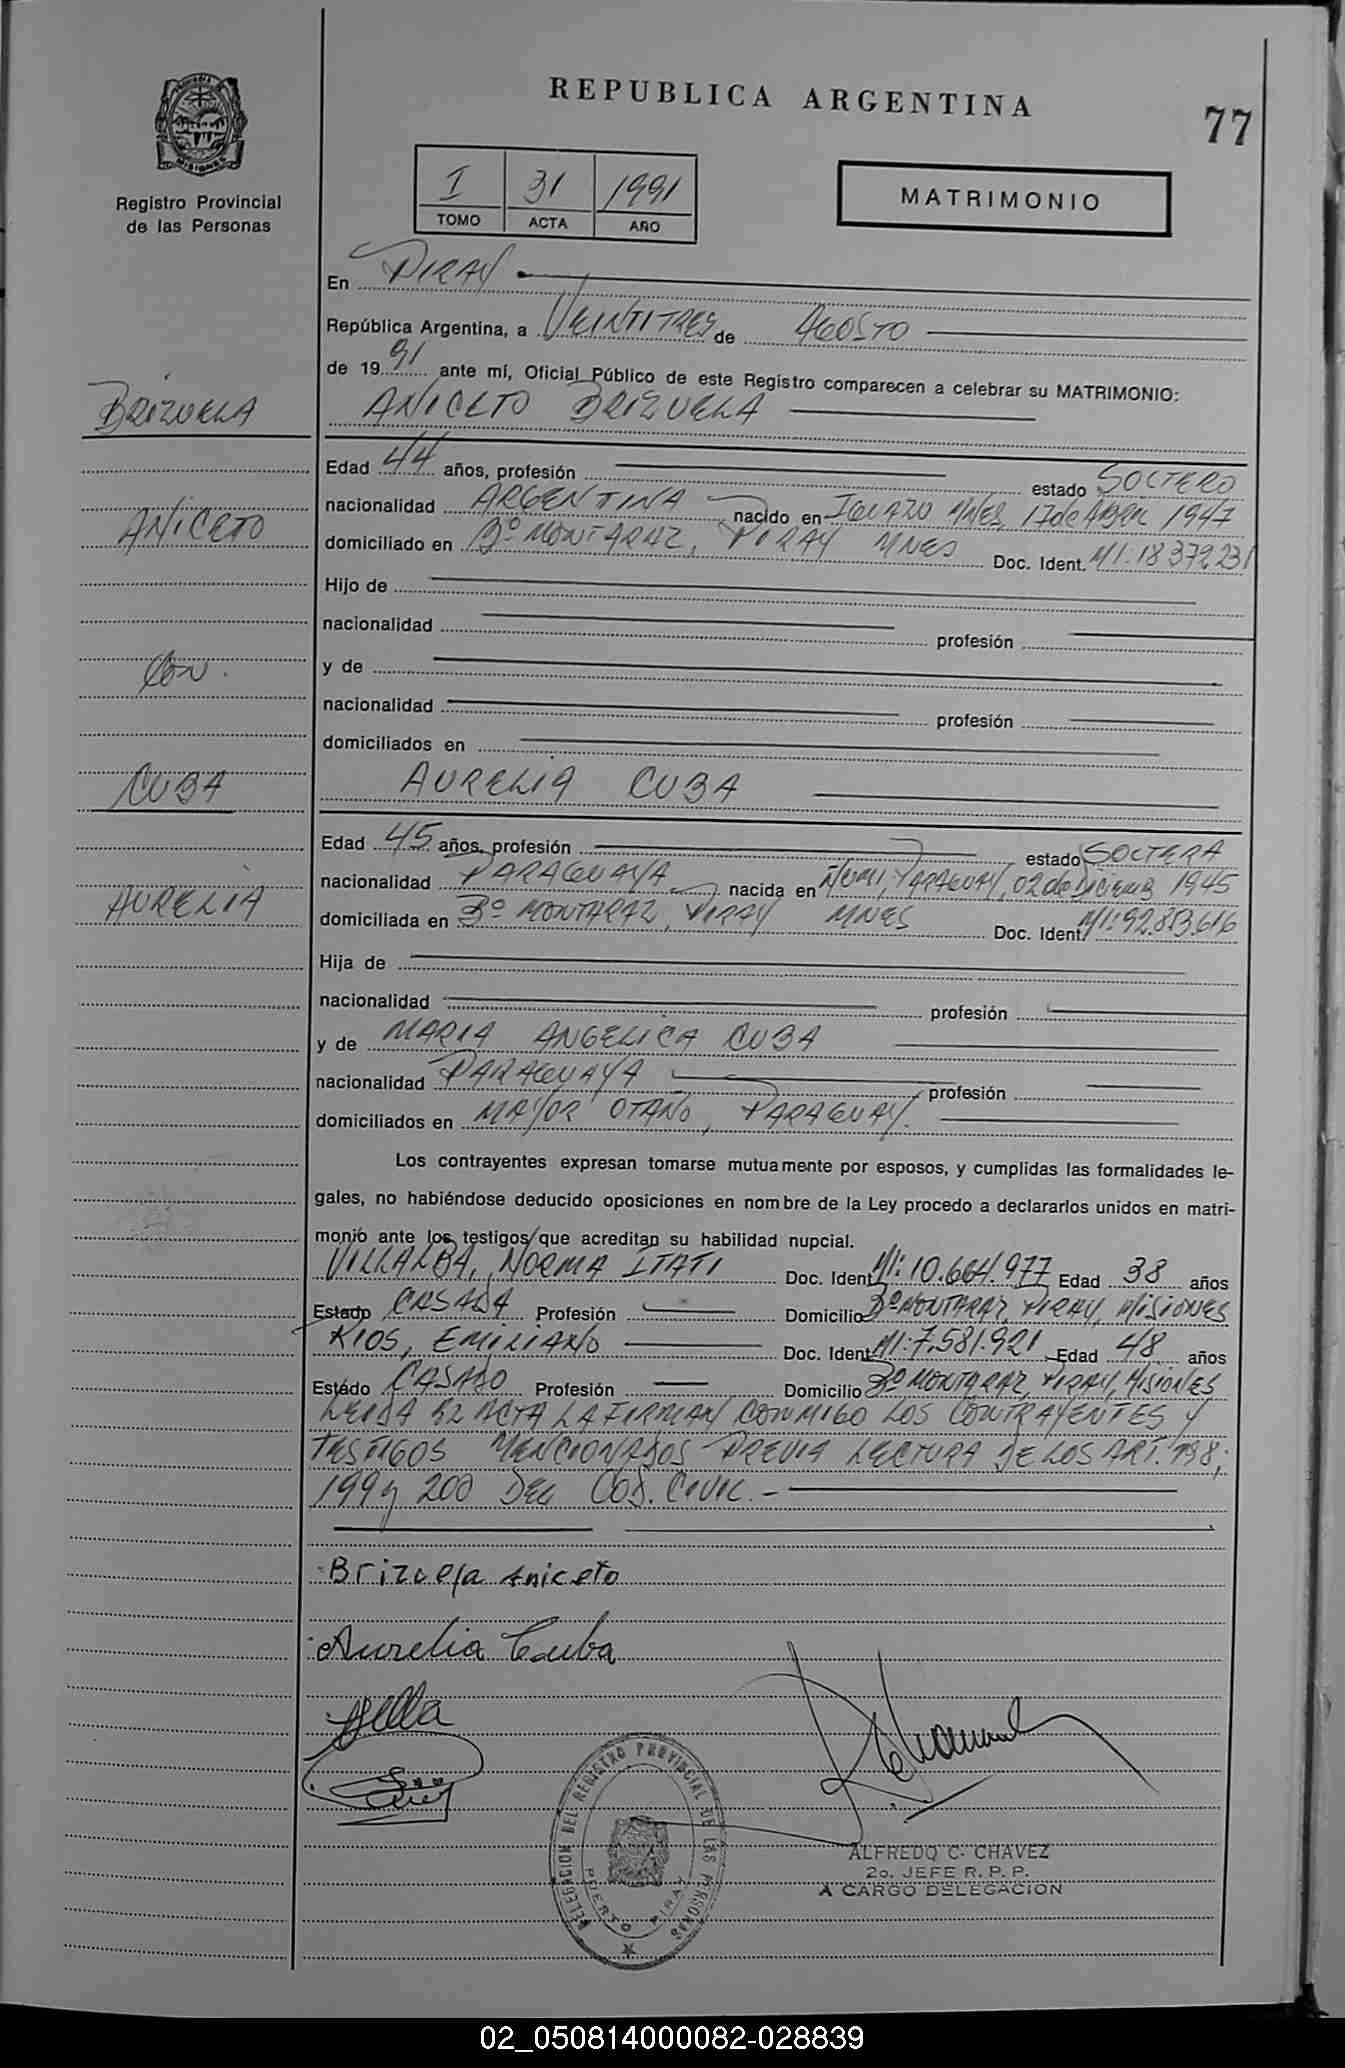 REPUBLICA ARGENTINA
77
MISIONES
Registro Provincial
de las Personas
I 31 1991
TOMO ACTA AÑO
MATRIMONIO
En PIRAY
República Argentina, a VEINTITRES de AGOSTO
de 1991 ante mí, Oficial Público de este Registro comparecen a celebrar su MATRIMONIO:
BRIZUELA
ANICETO BRIZUELA
Edad 44 años, profesión estado SOLTERO
nacionalidad ARGENTINA nacido en IGUAZU MNES 17 de ABRIL 1947
ANICETO
domiciliado en Bº MONTARAZ, PIRAY MNES Doc. Ident. MI: 18.379.231
Hijo de
nacionalidad profesión
CON.
y de
nacionalidad profesión
domiciliados en
CUBA
AURELIA CUBA
Edad 45 años, profesión estado SOLTERA
nacionalidad PARAGUAYA nacida en PARAGUAY, 02 de DICIEMB 1945
AURELIA
domiciliada en Bº MONTARAZ, PIRAY MNES Doc. Ident. MI: 92.853.616
Hija de
nacionalidad profesión
y de MARIA ANGELICA CUBA
nacionalidad PARAGUAYA profesión
domiciliados en MAYOR OTAÑO, PARAGUAY.
Los contrayentes expresan tomarse mutuamente por esposos, y cumplidas las formalidades le-
gales, no habiéndose deducido oposiciones en nombre de la Ley procedo a declararlos unidos en matri-
monio ante los testigos que acreditan su habilidad nupcial.
VILLALBA, NORMA ITATI Doc. Ident. MI: 10.664.977 Edad 38 años
Estado CASADA Profesión Domicilio Bº MONTARAZ, PIRAY, MISIONES
RIOS, EMILIANO Doc. Ident. MI: 7.581.921 Edad 48 años
Estado CASADO Profesión Domicilio Bº MONTARAZ, PIRAY, MISIONES
LEIDA EL ACTA LA FIRMAN CONMIGO LOS CONTRAYENTES Y
TESTIGOS MENCIONADOS PREVIA LECTURA DE LOS ART. 198,
199 y 200 DEL COD. CIVIL.-
Brizuela Aniceto
Aurelia Cuba
DELEGACION DEL REGISTRO PROVINCIAL DE LAS PERSONAS
PUERTO PIRAY
ALFREDO C. CHAVEZ
2o. JEFE R. P. P.
A CARGO DELEGACION
02_050814000082-028839